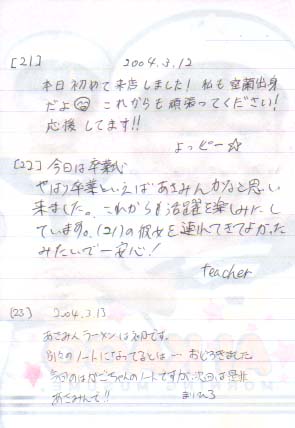 [21] 2004.3.12
本日初めて来店しました!私も室蘭出身
だよ これからも頑張ってください!
応援してます!!
よっピー☆
[22] 今日は卒業式
やはり卒業といえばあさみんかなと思い
来ました。これからも活躍を楽しみにし
ています。(21)の彼女を連れてきてよかった
みたいで一安心!
teacher
(23) 2004.3.13
あさみんラーメンは初です。
別のノートになってるとは… おどろきました
今回のはかごちゃんのノートですが、次回は是非
あさみんで!!
まひろ
MORNING MUSUME.